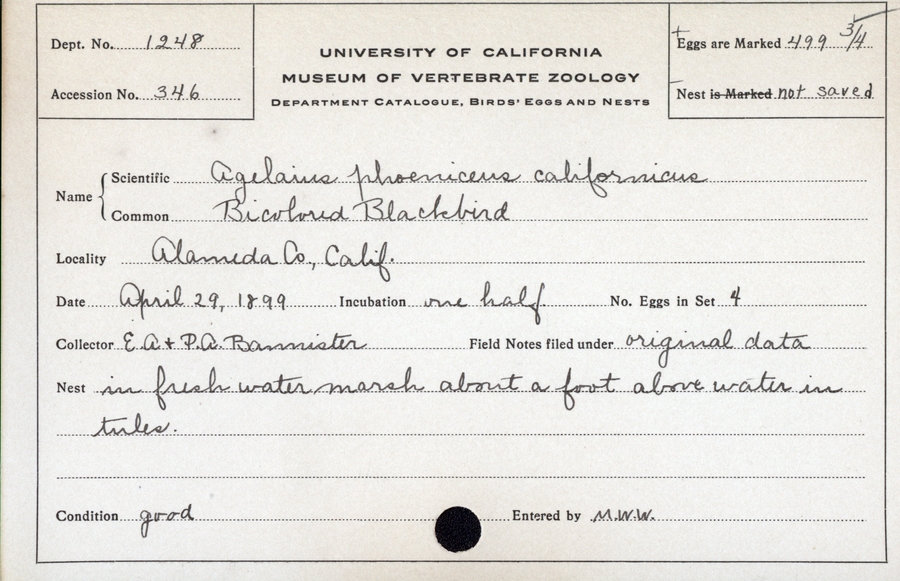 Dept. No. 1248
Accession No. 346
UNIVERSITY OF CALIFORNIA
MUSEUM OF VERTEBRATE ZOOLOGY
DEPARTMENT CATALOGUE, BIRDS' EGGS AND NESTS
+ Eggs are Marked 499 3/4
- Nest is Marked not saved
Name
Scientific Agelaius phoeniceus californicus
Common Bicolored Blackbird
Locality Alameda Co., Calif.
Date April 29, 1899 Incubation one half No. Eggs in Set 4
Collector E.A + P.A. Bannister Field Notes filed under original data
Nest in fresh water marsh about a foot above water in
tules.
Condition good Entered by M.W.W.